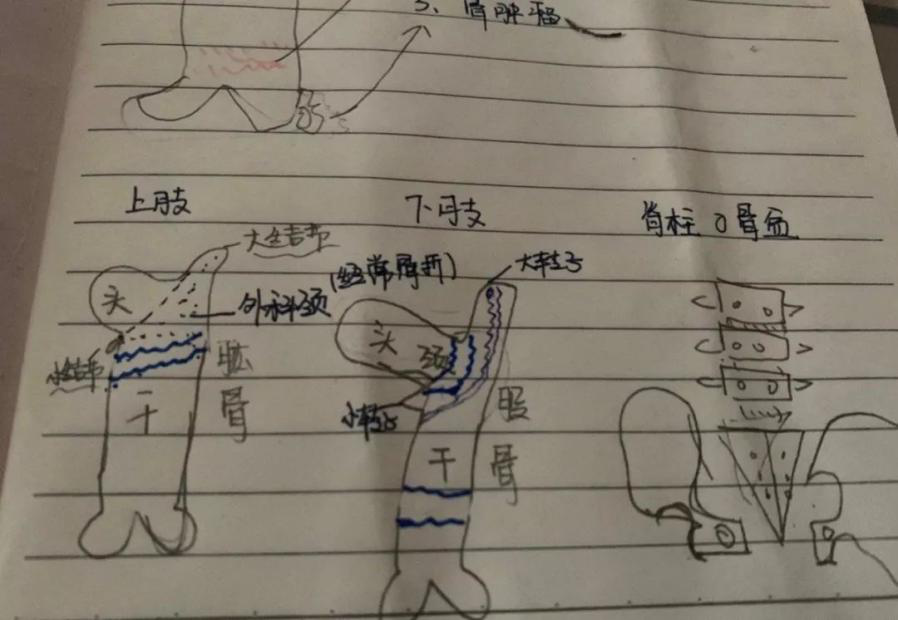 3、骨肿瘤
上肢
下肢
脊柱 骨盆
大结节
(经常骨折)
大转子
头
外科颈
头
颈
小结节
肱骨
股骨
小转子
干
干